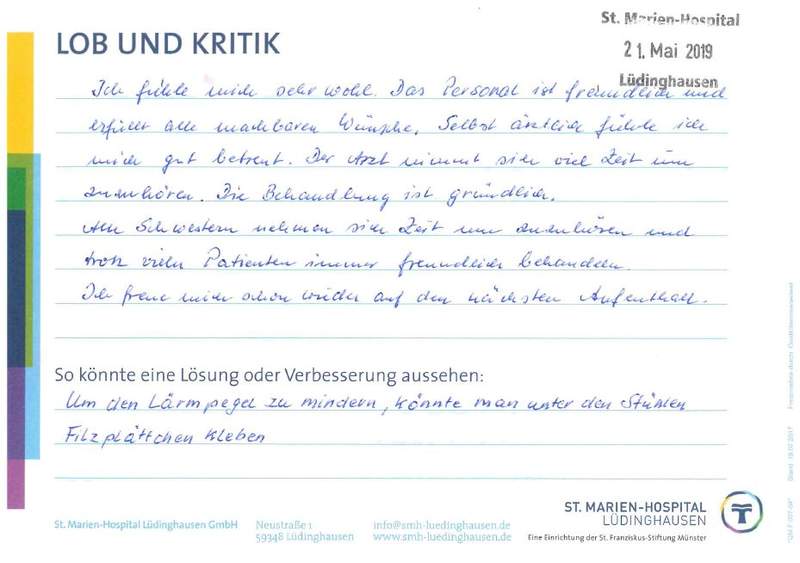 St. Marien-Hospital
21. Mai 2019
Lüdinghausen
LOB UND KRITIK
Ich fühle mich sehr wohl. Das Personal ist freundlich und
erfüllt alle machbaren Wünsche. Selbst ärztlich fühle ich
mich gut betreut. Der Arzt nimmt sich viel Zeit um
zuzuhören. Die Behandlung ist gründlich.
Alle Schwestern nehmen sich Zeit um zuzuhören und
trotz vielen Patienten immer freundlich behandeln.
Ich freue mich schon wieder auf den nächsten Aufenthalt.
So könnte eine Lösung oder Verbesserung aussehen:
Um den Lärmpegel zu mindern, könnte man unter den Stühlen
Filzplättchen kleben
St. Marien-Hospital Lüdinghausen GmbH
Neustraße 1
59348 Lüdinghausen
info@smh-luedinghausen.de
www.smh-luedinghausen.de
ST. MARIEN-HOSPITAL
LÜDINGHAUSEN
Eine Einrichtung der St. Franziskus-Stiftung Münster